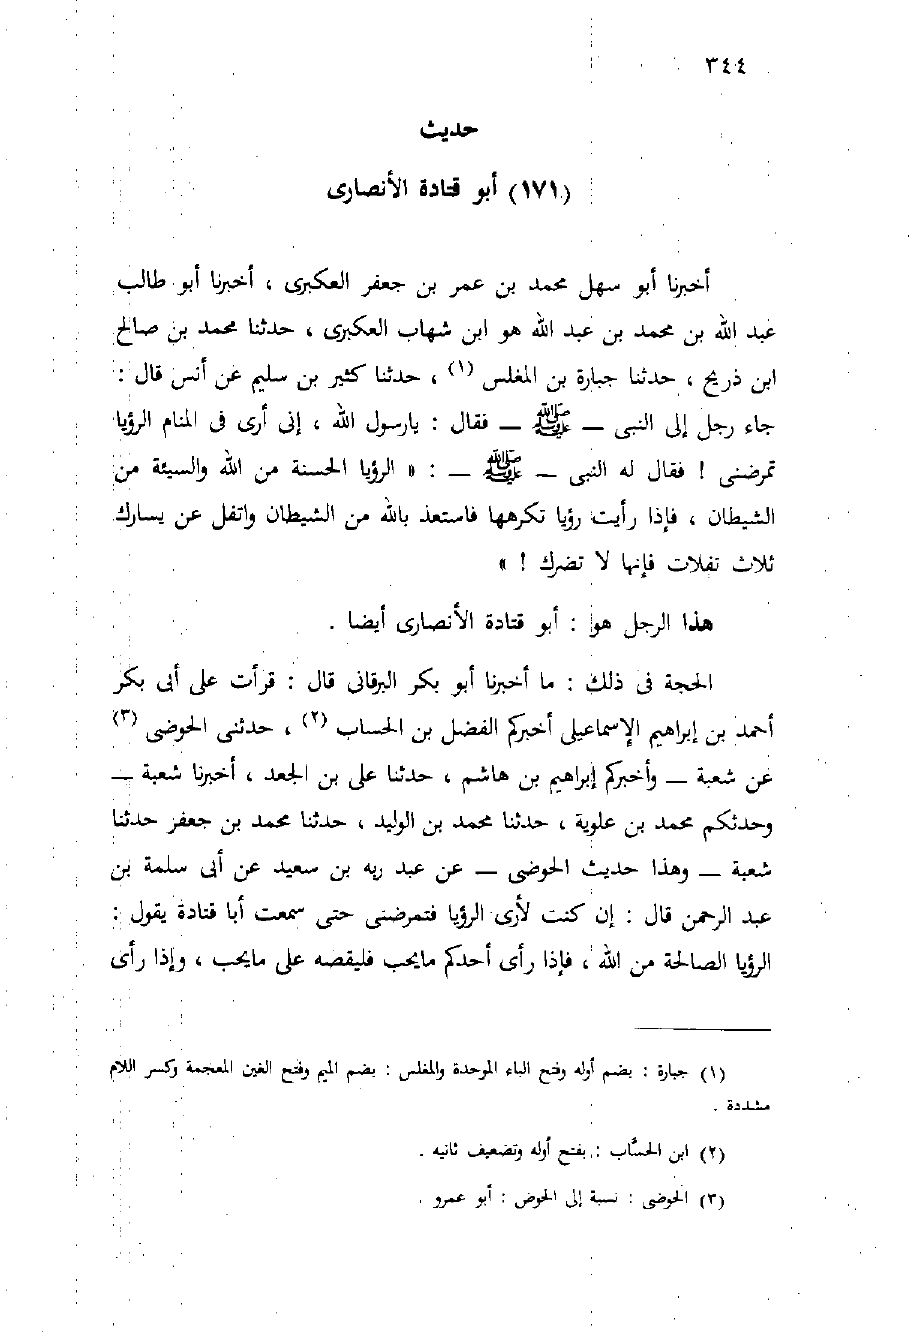 ٣٤٤
حديث
(١٧١) أبو قتادة الأنصارى
أخبرنا أبو سهل محمد بن عمر بن جعفر العكبرى ، أخبرنا أبو طالب
عبد الله بن محمد بن عبد الله هو ابن شهاب العكبرى ، حدثنا محمد بن صالح
ابن ذريح ، حدثنا جبارة بن المغلس (١) ، حدثنا كثير بن سليم عن أنس قال :
جاء رجل إلى النبى – ﷺ – فقال : يارسول الله ، إنى أرى فى المنام الرؤيا
تمرضنى ! فقال له النبى – ﷺ – : « الرؤيا الحسنة من الله والسيئة من
الشيطان ، فإذا رأيت رؤيا تكرهها فاستعذ بالله من الشيطان واتفل عن يسارك
ثلاث تفلات فإنها لا تضرك ! »
هذا الرجل هو : أبو قتادة الأنصارى أيضا .
الحجة فى ذلك : ما أخبرنا أبو بكر البرقانى قال : قرأت على أبى بكر
أحمد بن إبراهيم الإسماعيلى أخبركم الفضل بن الحساب (٢) ، حدثنى الحوضى (٣)
عن شعبة – وأخبركم إبراهيم بن هاشم ، حدثنا على بن الجعد ، أخبرنا شعبة –
وحدثكم محمد بن علوية ، حدثنا محمد بن الوليد ، حدثنا محمد بن جعفر حدثنا
شعبة – وهذا حديث الحوضى – عن عبد ربه بن سعيد عن أبى سلمة بن
عبد الرحمن قال : إن كنت لأرى الرؤيا فتمرضنى حتى سمعت أبا قتادة يقول :
الرؤيا الصالحة من الله ، فإذا رأى أحدكم مايحب فليقصه على مايحب ، وإذا رأى
(١) جبارة : بضم أوله وفتح الباء الموحدة والمغلس : بضم الميم وفتح الغين المعجمة وكسر اللام
مشددة .
(٢) ابن الحسَّاب : بفتح أوله وتضعيف ثانيه .
(٣) الحوضى : نسبة إلى الحوض : أبو عمرو .